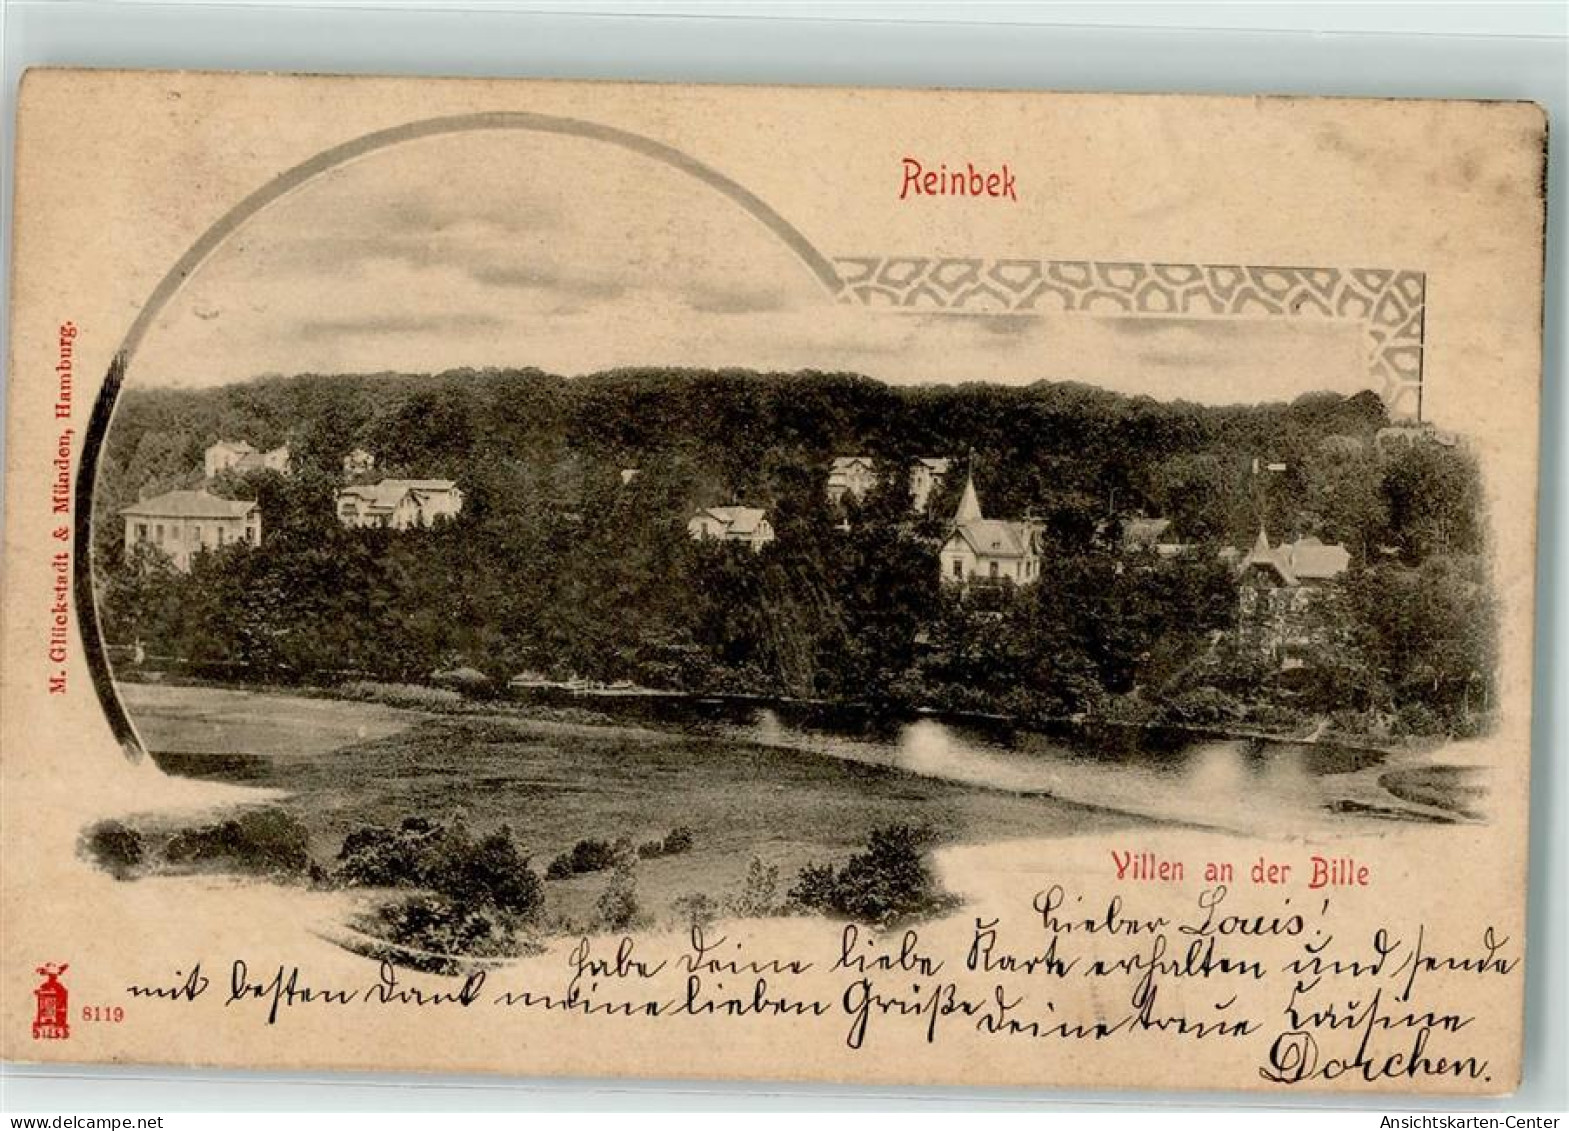 Reinbek
M. Glückstadt & Münden, Hamburg.
Villen an der Bille
Lieber Louis!
habe Deine liebe Karte erhalten und sende
mit besten Dank meine lieben Grüße
Deine treue Cousine
Dorchen.
8119
AnsichtsKarten-Center.de
Ansichtskarten-Center